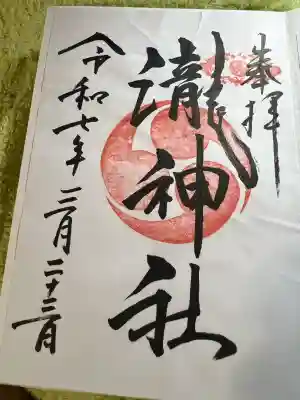 奉拝
瀧神社
令和七年三月二十三日